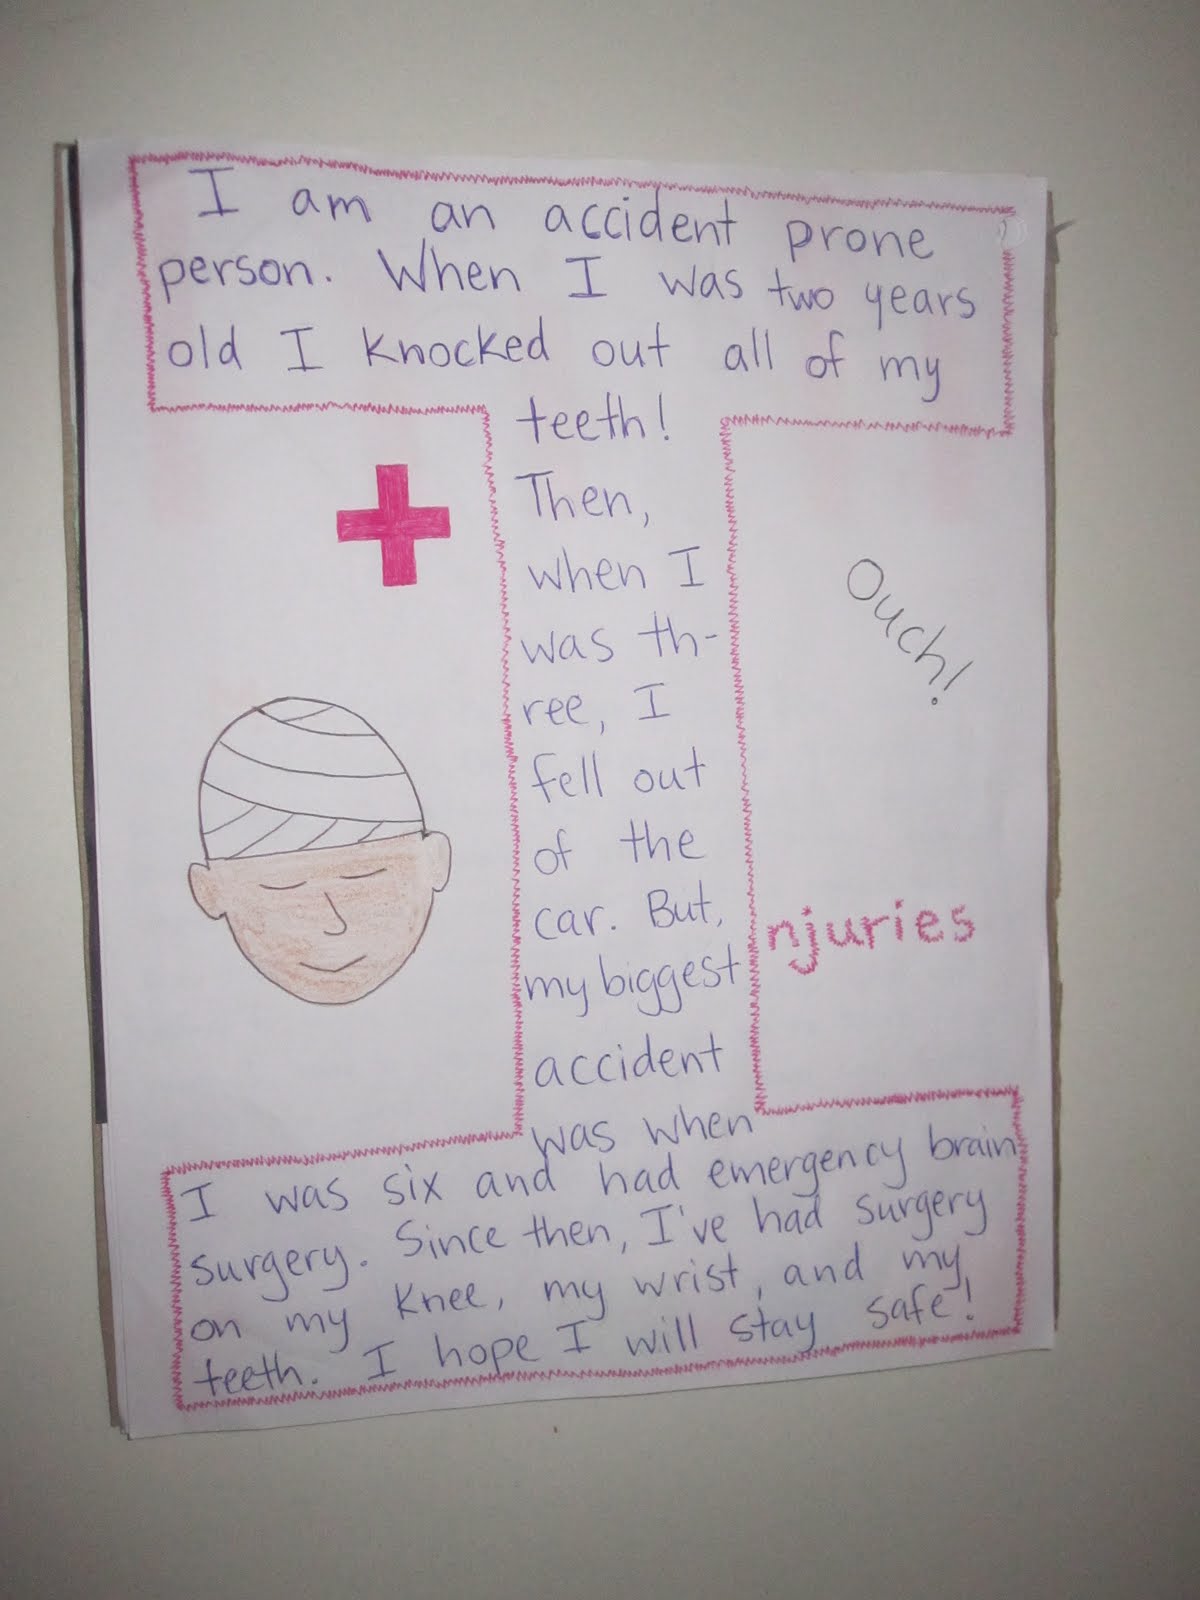 I am an accident prone
person. When I was two years
old I knocked out all of my
teeth!
Then,
when I
was th-
ree, I
fell out
of the
car. But,
my biggest
accident
was when
I was six and had emergency brain
surgery. Since then, I've had surgery
on my knee, my wrist, and my
teeth. I hope I will stay safe!
Ouch!
njuries